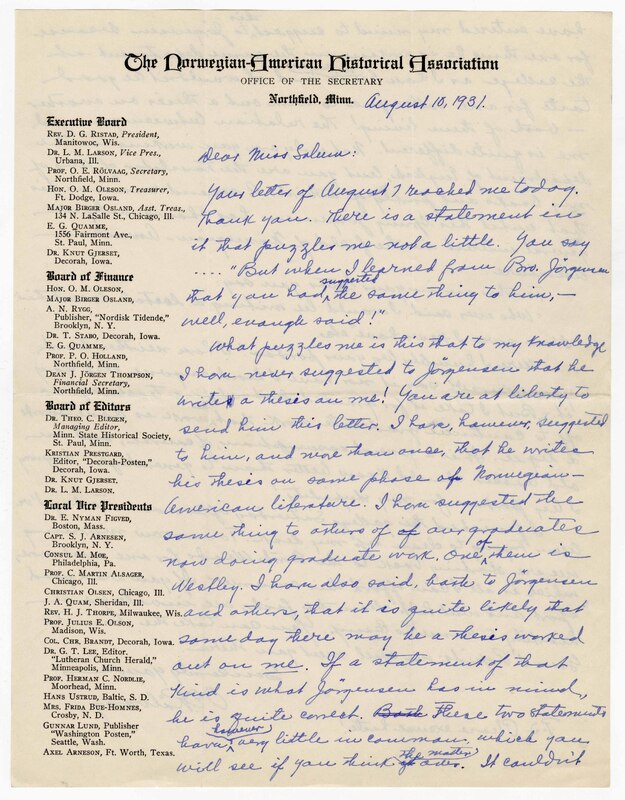 The Norwegian-American Historical Association
OFFICE OF THE SECRETARY
Northfield, Minn. August 10, 1931.
Executive Board
REV. D. G. RISTAD, President,
Manitowoc, Wis.
DR. L. M. LARSON, Vice Pres.,
Urbana, Ill.
PROF. O. E. RÖLVAAG, Secretary,
Northfield, Minn.
HON. O. M. OLESON, Treasurer,
Ft. Dodge, Iowa.
MAJOR BIRGER OSLAND, Asst. Treas.,
134 N. LaSalle St., Chicago, Ill.
E. G. QUAMME,
1556 Fairmont Ave.,
St. Paul, Minn.
DR. KNUT GJERSET,
Decorah, Iowa.
Board of Finance
HON. O. M. OLESON,
MAJOR BIRGER OSLAND,
A. N. RYGG,
Publisher, "Nordisk Tidende,"
Brooklyn, N. Y.
DR. T. STABO, Decorah, Iowa.
E. G. QUAMME,
PROF. P. O. HOLLAND,
Northfield, Minn.
DEAN J. JÖRGEN THOMPSON,
Financial Secretary,
Northfield, Minn.
Board of Editors
DR. THEO. C. BLEGEN,
Managing Editor,
Minn. State Historical Society,
St. Paul, Minn.
KRISTIAN PRESTGARD,
Editor, "Decorah-Posten,"
Decorah, Iowa.
DR. KNUT GJERSET.
DR. L. M. LARSON.
Local Vice Presidents
DR. E. NYMAN FIGVED,
Boston, Mass.
CAPT. S. J. ARNESEN,
Brooklyn, N. Y.
CONSUL M. MOE,
Philadelphia, Pa.
PROF. C. MARTIN ALSAGER,
Chicago, Ill.
CHRISTIAN OLSEN, Chicago, Ill.
J. A. QUAM, Sheridan, Ill.
REV. H. J. THORPE, Milwaukee, Wis.
PROF. JULIUS E. OLSON,
Madison, Wis.
COL. CHR. BRANDT, Decorah, Iowa.
DR. G. T. LEE, Editor.
"Lutheran Church Herald,"
Minneapolis, Minn.
PROF. HERMAN C. NORDLIE,
Moorhead, Minn.
HANS USTRUD, Baltic, S. D.
MRS. FRIDA BUE-HOMNES,
Crosby, N. D.
GUNNAR LUND, Publisher
"Washington Posten,"
Seattle, Wash.
AXEL ARNESON, Ft. Worth, Texas.
Dear Miss Solum:
Your letter of August 7 reached me today.
Thank you. There is a statement in
it that puzzles me not a little. You say
...."But when I learned from Bro. Jörgensen
that you had suggested the same thing to him,—
well, enough said!"
What puzzles me is this that to my knowledge
I have never suggested to Jörgensen that he
write a thesis on me! You are at liberty to
send him this letter. I have, however, suggested
to him, and more than once, that he writes
his thesis on some phase of Norwegian-
American literature. I have suggested the
same thing to others of of our graduates
now doing graduate work. One of them is
I have also said, both to Jörgensen
and others, that it is quite likely that
some day there may be a thesis worked
out on me. If a statement of that
kind is what Jörgensen has in mind,
he is quite correct. Both These two statements
have, however very little in common, which you
will see if you think the matter over. It couldn't